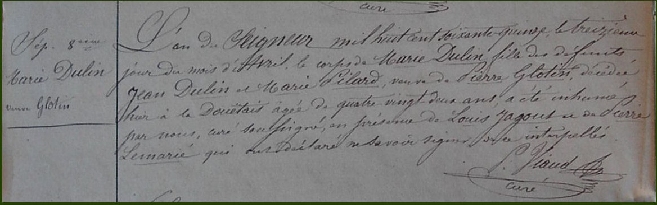 curé
Sép. 8ème
Marie Dulin
veuve Glotin
L'an du Seigneur mil huit cent soixante quinze, le treizième
jour du mois d'Avril, le corps de Marie Dulin, fille des défunts
Jean Dulin et Marie Pilard, veuve de Pierre Glotin, décédée
hier à la Douétais agée de quatre vingt deux ans, a été inhumé
par nous, curé soussigné, en présence de Louis Jagout et de Pierre
Lemarié qui ont déclaré ne savoir signer de ce interpellés
Viaud
curé